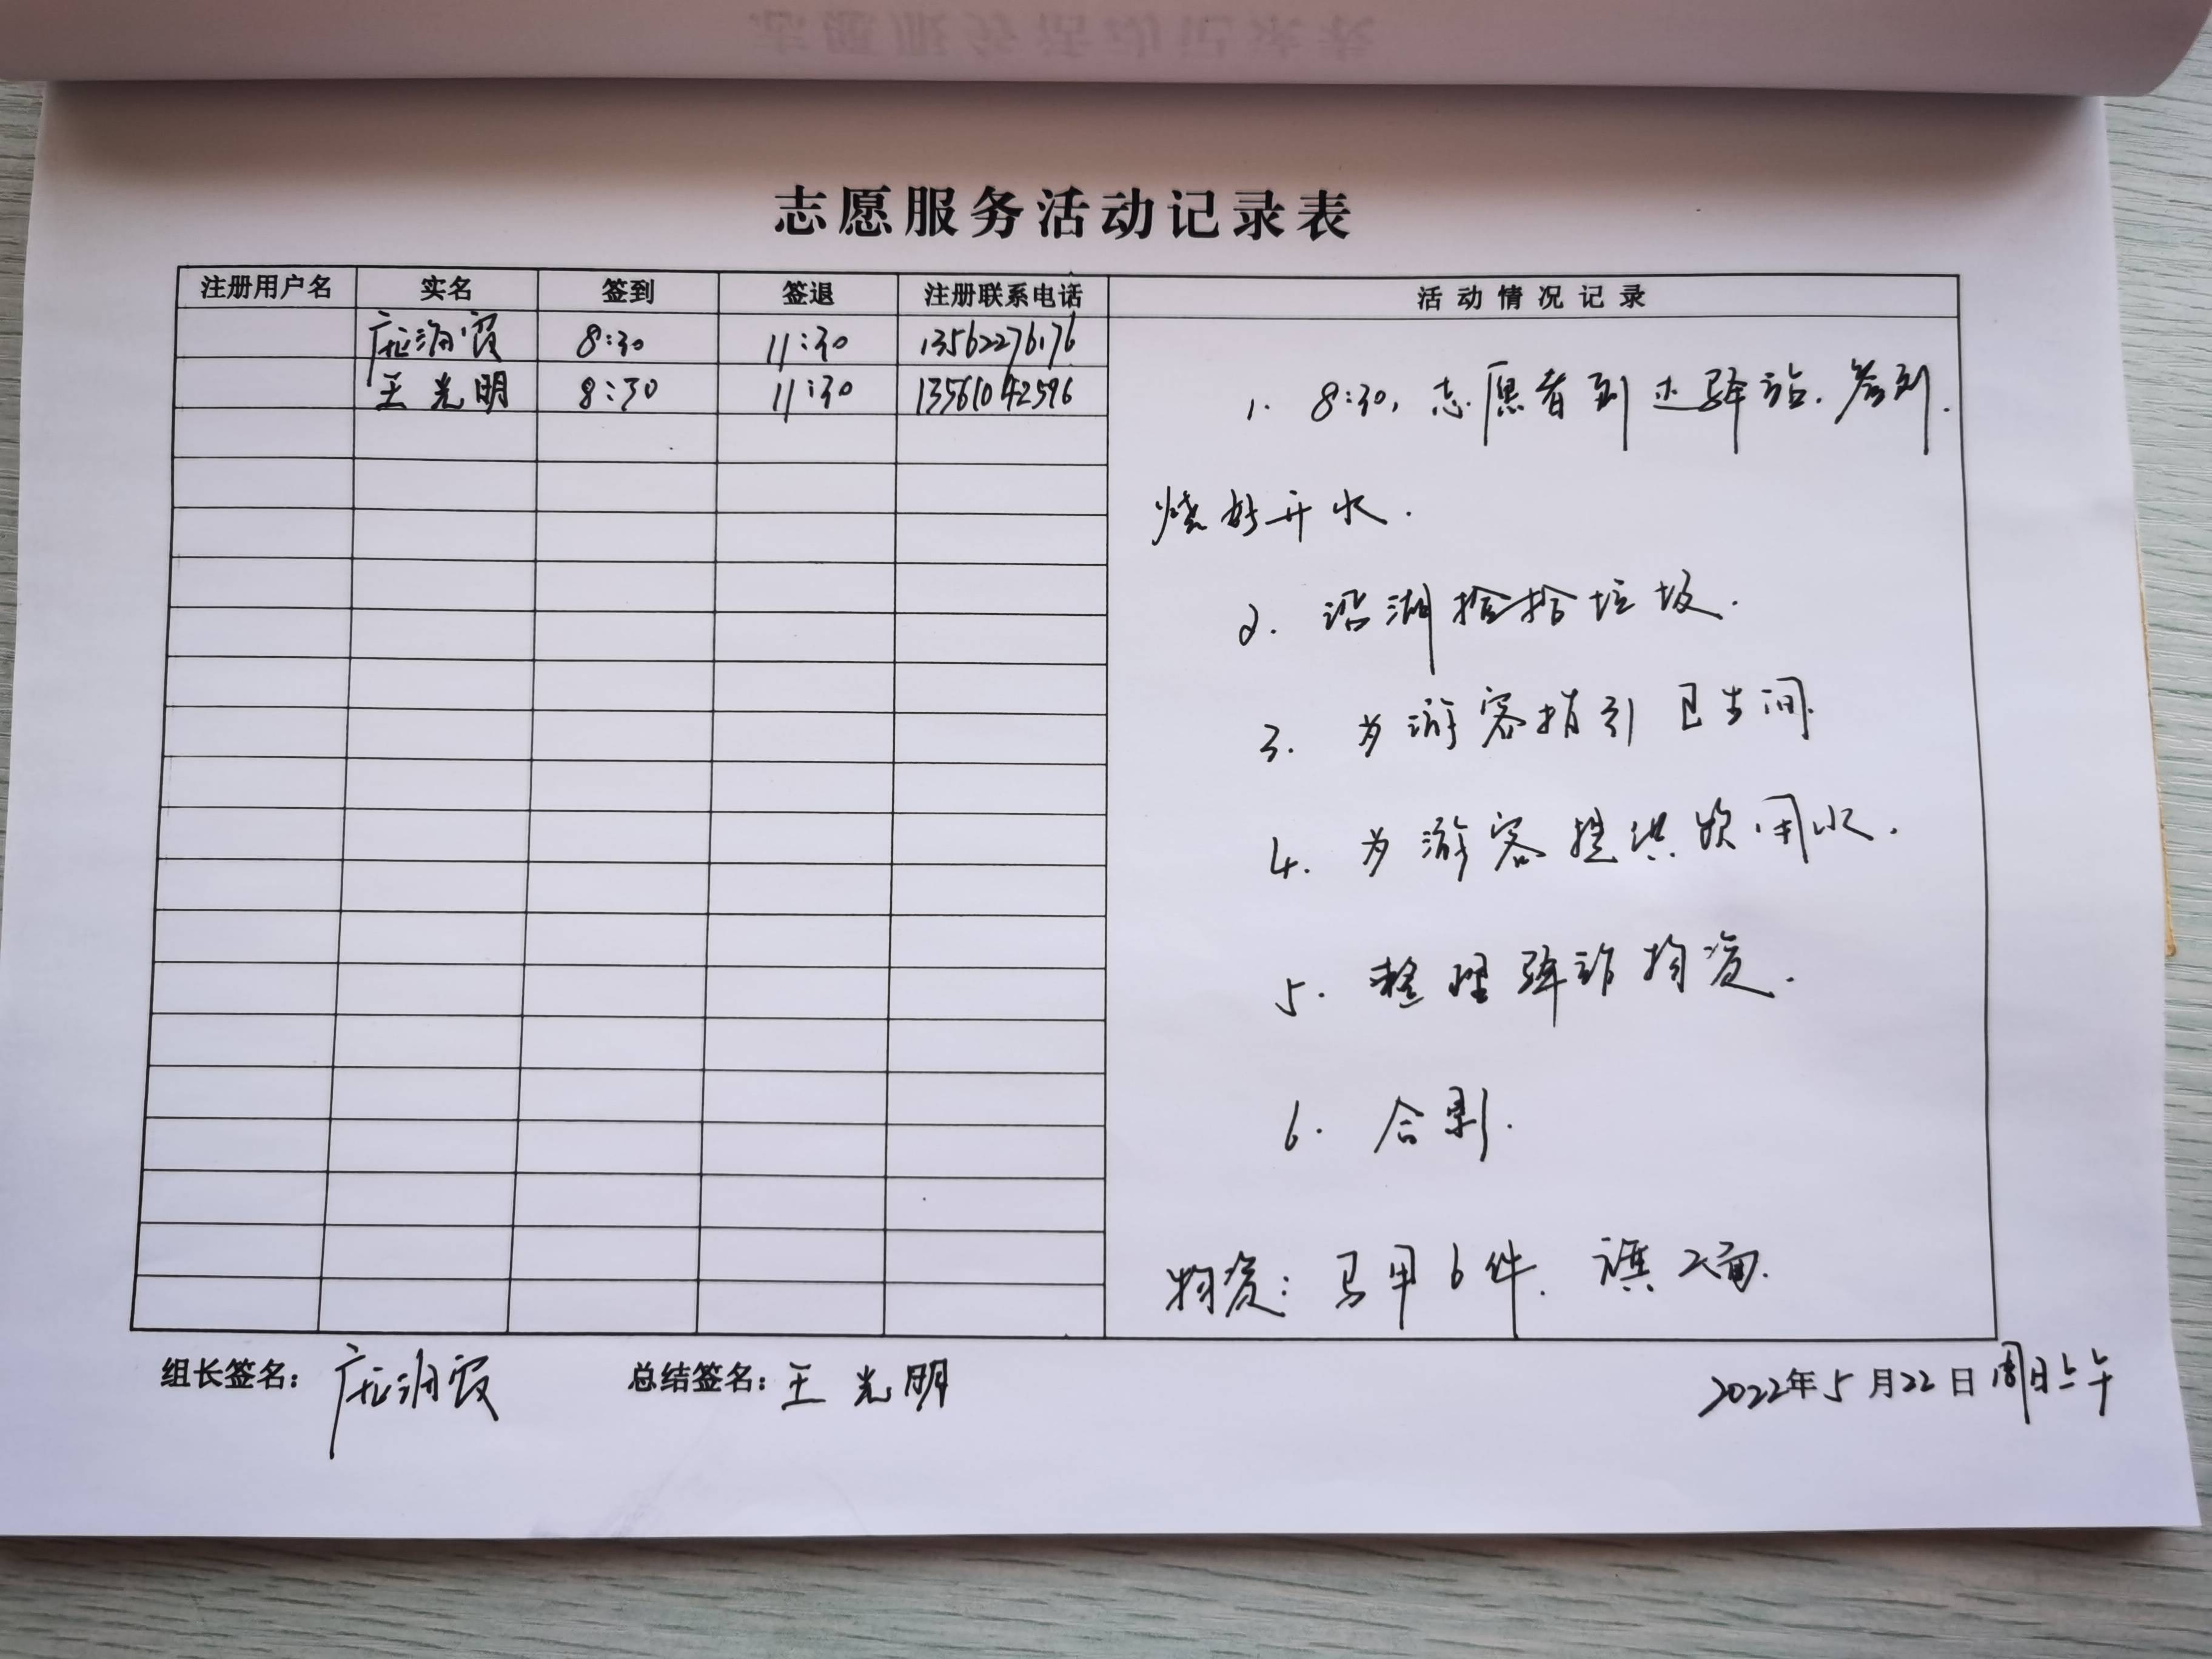 志愿服务活动记录表
注册用户名 实名 签到 签退 注册联系电话 活动情况记录
庞润霞 8:30 11:30 13562276176
王光明 8:30 11:30 13561042596
1. 8:30, 志愿者到达驿站. 签到.
烧好开水.
2. 沿湖捡拾垃圾.
3. 为游客指引卫生间.
4. 为游客提供饮用水.
5. 整理驿站物资.
6. 合影.
物资: 马甲6件. 旗2面.
组长签名: 庞润霞 总结签名: 王光明 2022年5月22日周日上午